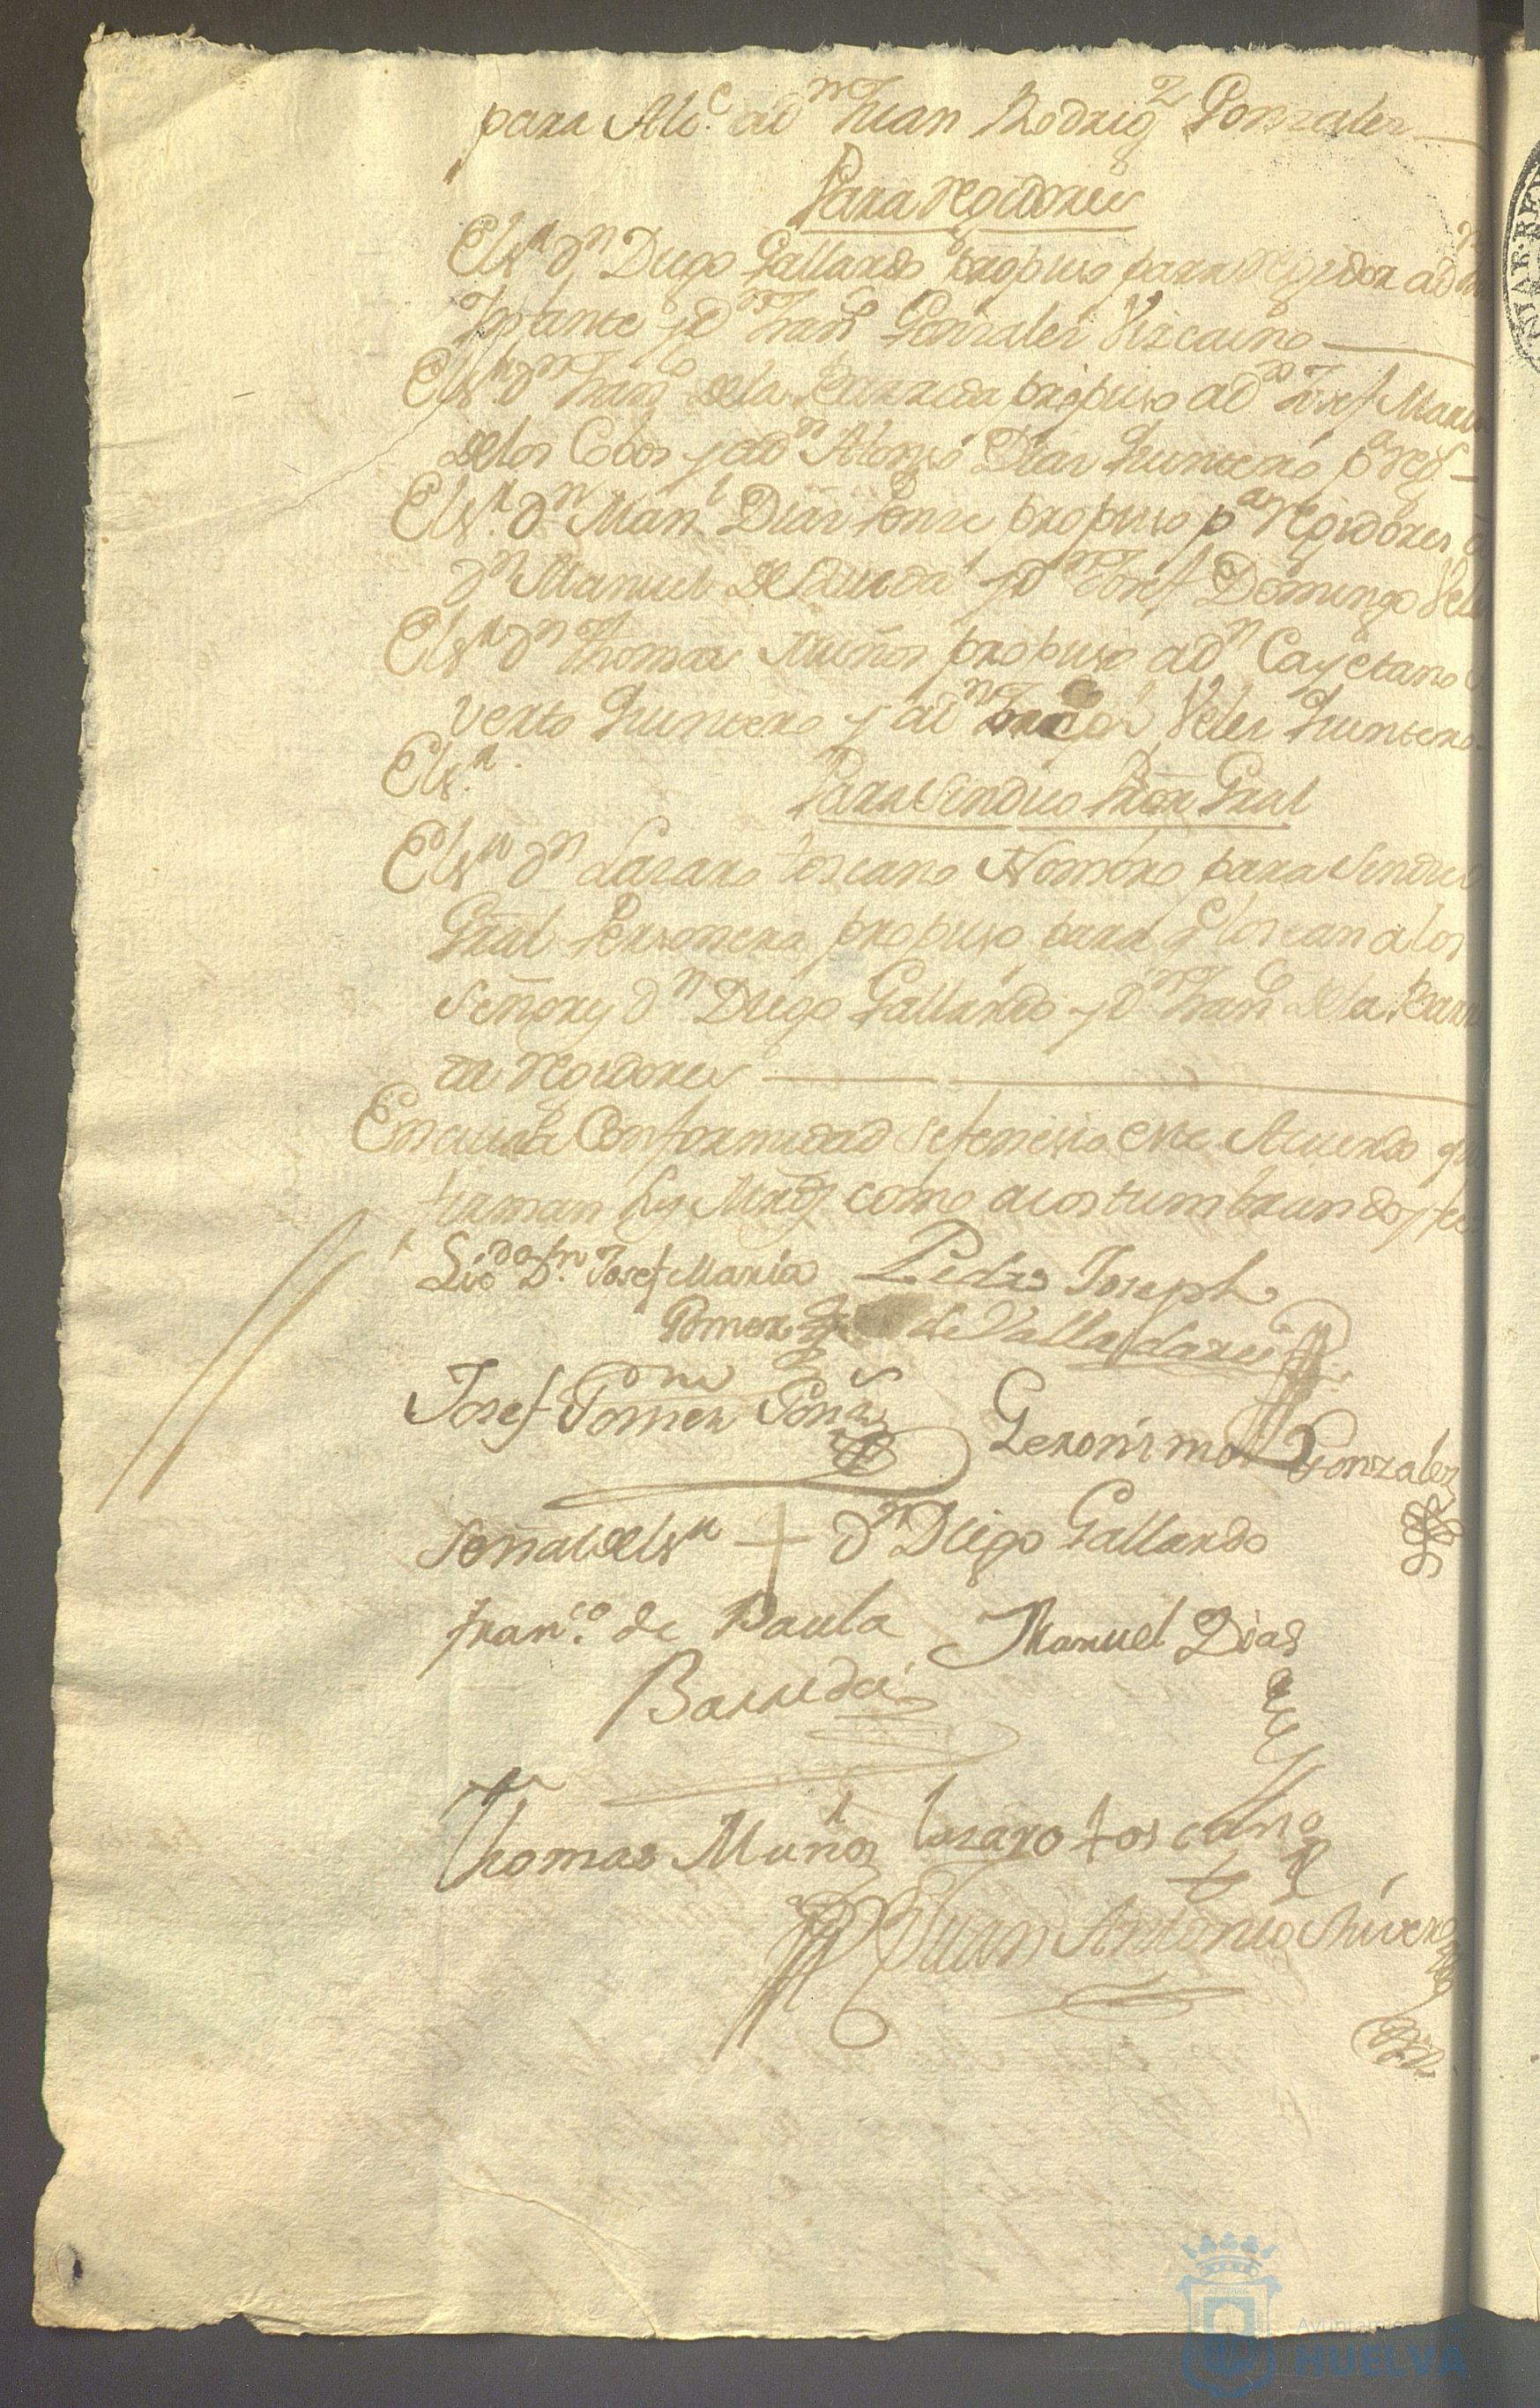 para Alc.e a dn Juan Rodrigz Gonzales
Para regidores
El sr dn Diego Gallardo propuso para regidor a dn
Infante y dn Franco Gonzales Vizcaino
El sr dn Franco de la Barreda propuso a dn Josef Maria
de los Cobos y a dn Alonso Diaz Quintero pa reg.s
El sr. dn Manl Diaz Ponze propuso pa regidores a
dn Manuel de Sauceda y dn Josef Domingo Vele
El sr dn Thomas Muños propuso a dn Cayetano
verto Quintero y a dn Franco Veles Quintero
El sr.
Para Sindico Pror Gral
El sr dn Lazaro toscano Nombro para Sindico
Gral Personero propuso para q lo sean a los
Señorẽs dn Diego Gallardo y dn Franco de la Barre
da regidores
En cuia Conformidad se fenesio este Acuerdo qe
firman sus Mrds como acostumbran doy fee
Licdo Dn. Josef Maria Pedro Joseph
Gomez de Valladares
Josef Gomez Gonz Geronimo Gonzalez
Señal del sr + dn Diego Gallardo
Franco. de Paula Manuel Dias
Barreda
Thomas Muños Lazaro toscano
Juan Antonio Rivero
HUELVA